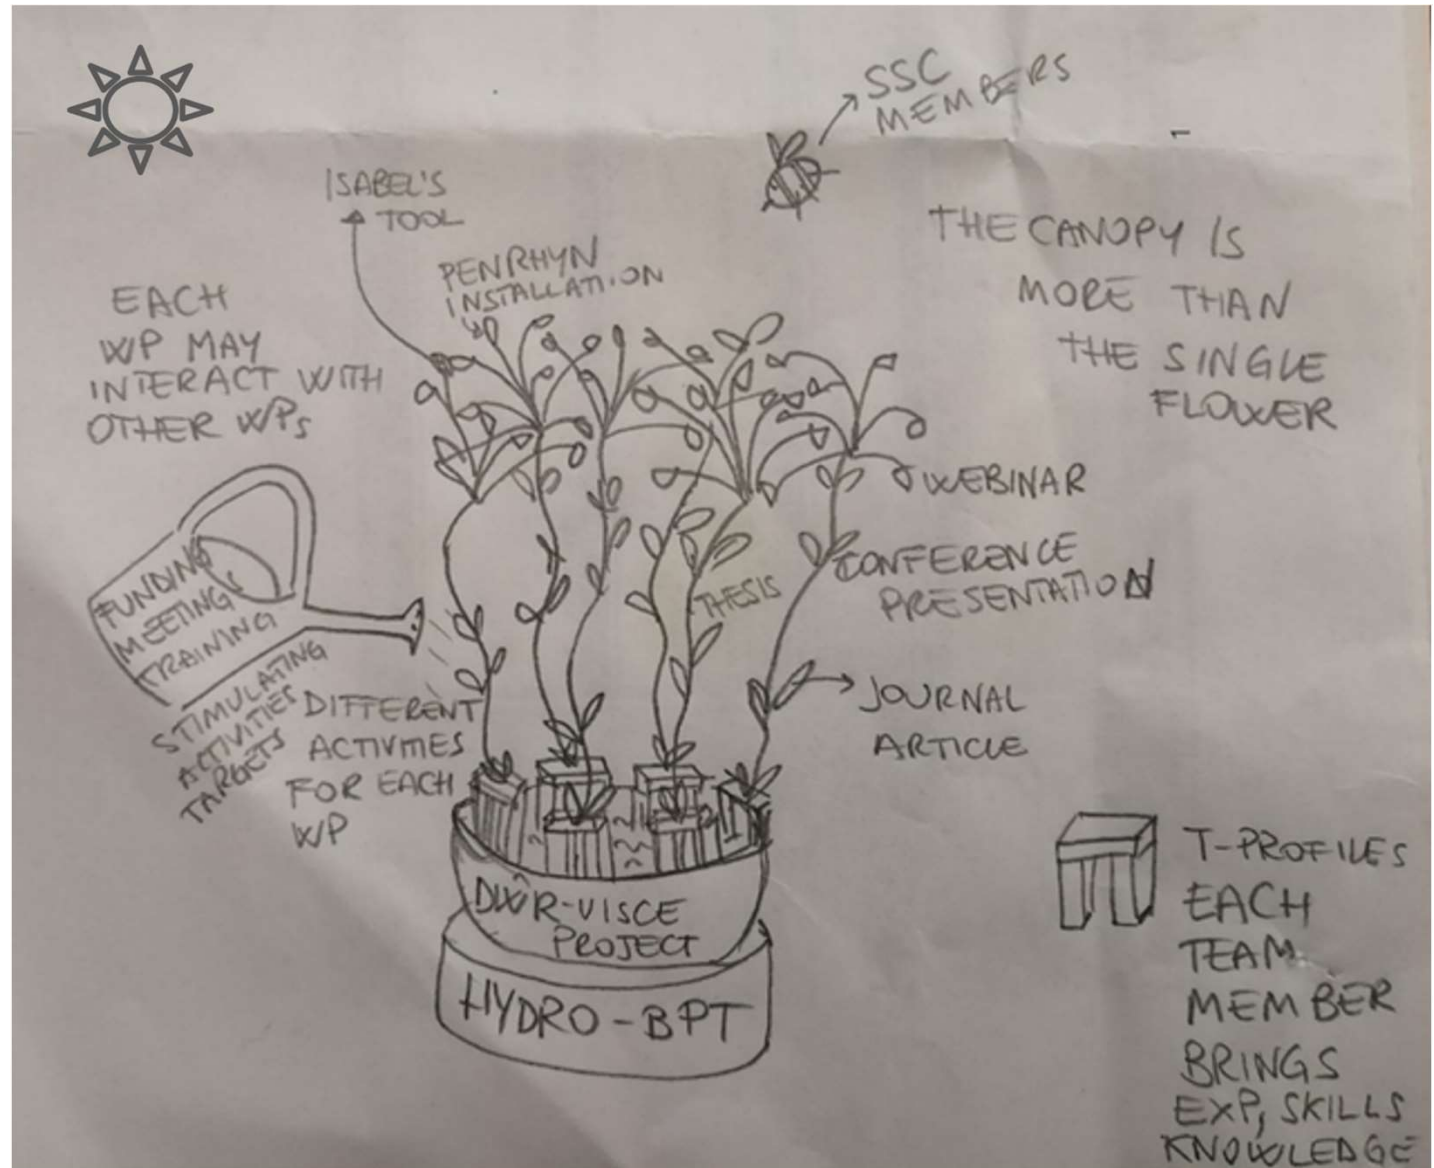 SSC
MEMBERS
ISABEL'S
TOOL
PENRHYN
INSTALLATION
THE CANOPY IS
MORE THAN
THE SINGLE
FLOWER
EACH
WP MAY
INTERACT WITH
OTHER WPs
WEBINAR
CONFERENCE
PRESENTATION
THESIS
FUNDING
MEETING
TRAINING
STIMULATING
ACTIVITIES
TARGETS
DIFFERENT
ACTIVITIES
FOR EACH
WP
JOURNAL
ARTICLE
DŴR-VISCE
PROJECT
HYDRO-BPT
T-PROFILES
EACH
TEAM
MEMBER
BRINGS
EXP, SKILLS
KNOWLEDGE